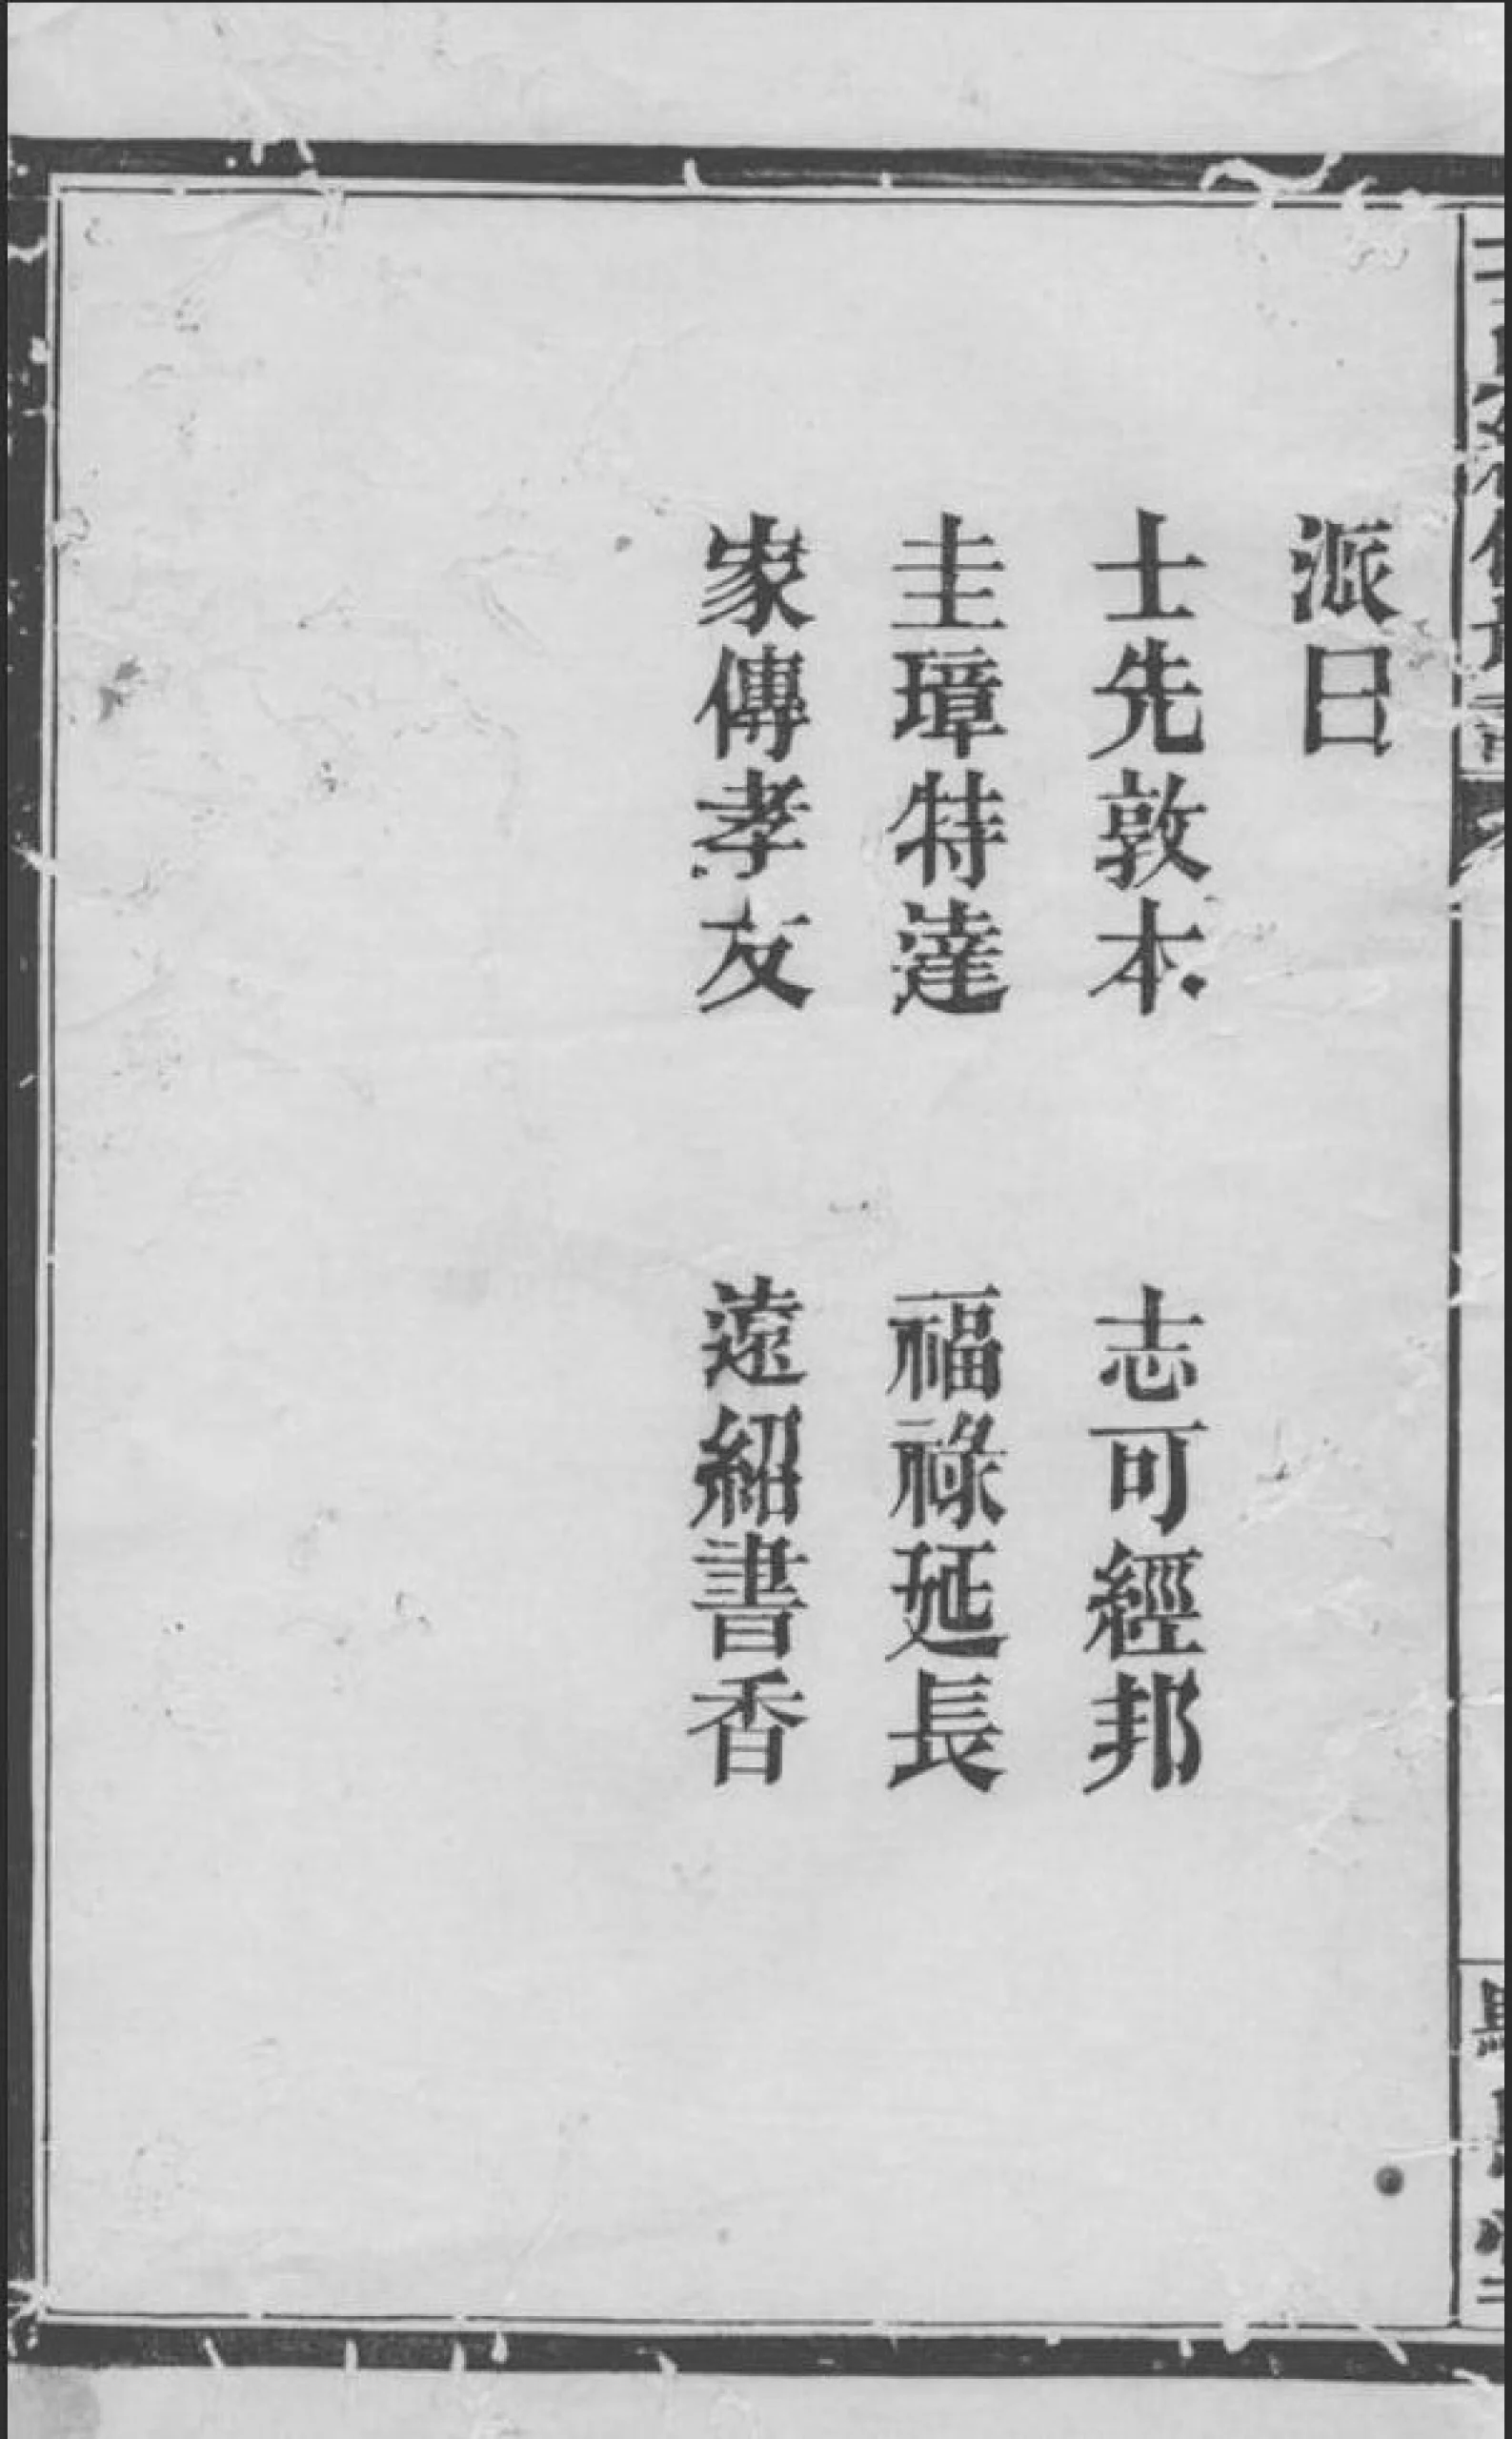 派曰
士先敦本　志可經邦
圭璋特達　福祿延長
家傳孝友　遠紹書香